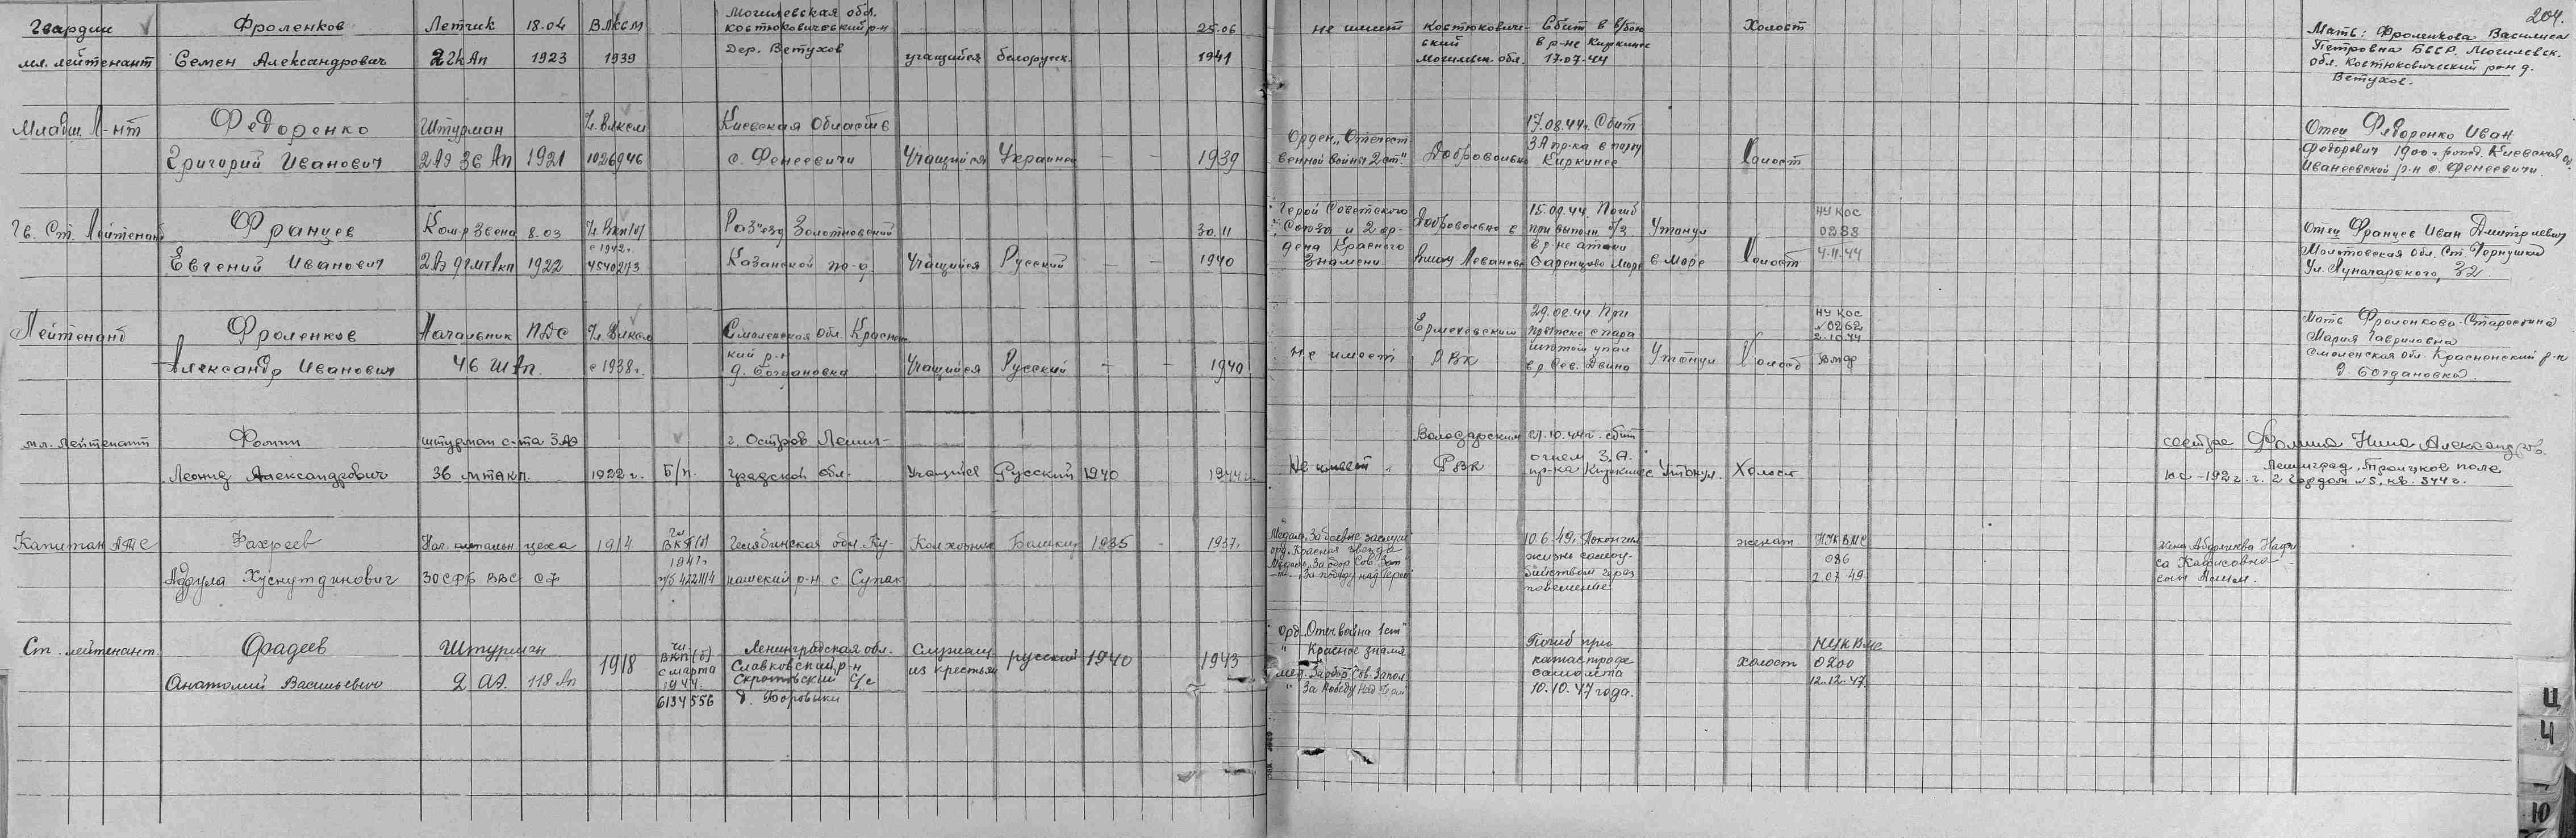 204.
Гвардии Фроленков Летчик 18.04 ВЛКСМ Могилевская обл. Костюковичский р-н 25.06
мл. лейтенант Семен Александрович 22к Ап 1923 1939 Дер. Ветухов учащийся белорусск. 1941
не имеет Костюкович- Сбит в в/бою Холост
ский в р-не Киркинес
Могилевск. обл. 17.07.44
Мать: Фроленкова Василиса
Петровна БССР. Могилевск.
обл. Костюковический р-н д.
Ветухов.
Младш. Л-нт Федоренко Штурман Чл. Влксм Киевская Область
Григорий Иванович 2АЭ 36 Ап 1921 1026946 с. Фенеевичи Учащийся Украинец — — 1939
Орден „Отечест
венной войны 2 ст." Добровольно Холост
17.08.44г. Сбит
ЗА пр-ка в порту
Киркинес
Отец Федоренко Иван
Федорович 1900 г. рожд. Киевская об.
Иванеевской р-н с. Фенеевичи.
Гв. Ст. Лейтенант Францев Ком-р Звена 8.03 Чл. Вкп(б) Раз"езд Золотновский 30.11
с 1942г.
Евгений Иванович 2АЭ 9гмтАкп 1922 4540273 Казанской жд. Учащийся Русский — — 1940
Герой Советского
Союза и 2 ор-
дена Красного
Знамени
Добровольно в
Вмау Леваневск
15.09.44. Погиб
при выполн. б/з
в р-не атаки
Баренцово Море
Утонул
в море
Холост
НУ КОС
0288
4.11.44
Отец Францев Иван Дмитриевич
Молотовская обл. Ст. Чернушка
Ул. Луначарского, 32.
Лейтенант Фроленков Начальник ПДС Чл. Влксм Смоленская обл. Краснен
Александр Иванович 46 ШАп. с 1938г. кий р-н
д. Богдановка Учащийся Русский — — 1940
Не имеет
Ермечевский
РВК
29.08.44 При
прыжке с пара
шютом упал
в р. Сев. Двина
Утонул Холост
НУ КОС
№0262
2.10.44
ВМФ
Мать Фроленкова-Старостина
Мария Гавриловна
Смоленская обл. Красненский р-н
д. Богдановка.
мл. лейтенант Фомин штурман с-та 3 АЭ г. Остров Ленин-
Леонид Александрович 36 мтакп. 1922 г. Б/п. градской обл. Учащийся Русский 1940 1944 г.
Не имеет.
Володарским
РВК
21.10.44г. сбит
огнем З.А.
пр-ка Киркинес Утонул. Холост
сестра Фомина Нина Александров.
Ленинград, Троицкое поле
2 Гордом №5, кв. 344г.
Капитан АТС Фахреев Нач. цеха 1914 Чл
ВКП(б)
1941г.
п/б 4221114
Челябинская обл. Ку-
Абдула Хуснутдинович 30 СФБ ВВС СФ нашский р-н. с. Сулак Колхозник Башкир 1935 - 1937г.
Медаль „За боевые заслуги"
орд. Красная звезда
Медаль „За обор. Сов. Зап
—"— „За победу над Герм
10.6.49г. Покончил
жизнь самоу-
бийством через
повешение
женат
НУК ВМС
086
2.07.49
жена Абдуликова Нафи
са Кафисовна
сын Алим.
Ст. лейтенант. Фадеев Штурман 1918
Анатолий Васильевич 2 АЭ. 118 Ап
Чл.
ВКП(б)
с марта
1944.
6134556
Ленинградская обл.
Славковский р-н
Скротовский с/с
д. Боровыки
Служащ
из крестьян русский 1940 1943
Орд. „Отеч. война 1 ст"
" Красное знамя"
мед. „За обор. Сов. Запол
" За Победу Над Герм
Погиб при
катастрофе
самолета
10.10.47 года.
холост
НУК ВМС
0200
12.12.47.
Ц
Ч
Ю